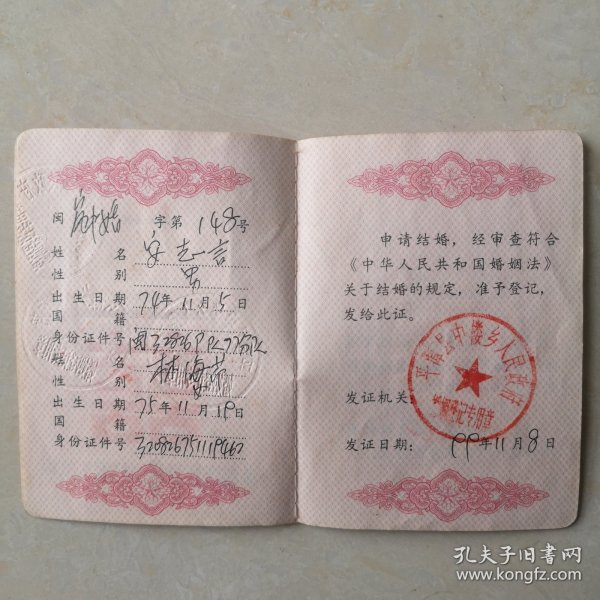 闽 字第 148号
姓名
志言
性别 男
出生日期 74年11月5日
国籍
身份证件号
姓名 林海
性别 女
出生日期 75年11月19日
国籍
身份证件号
申请结婚，经审查符合
《中华人民共和国婚姻法》
关于结婚的规定，准予登记，
发给此证。
发证机关：
平 县中楼乡人民政府
婚姻登记专用章
发证日期： 99年11月8日
孔夫子旧书网
www.kongfz.com